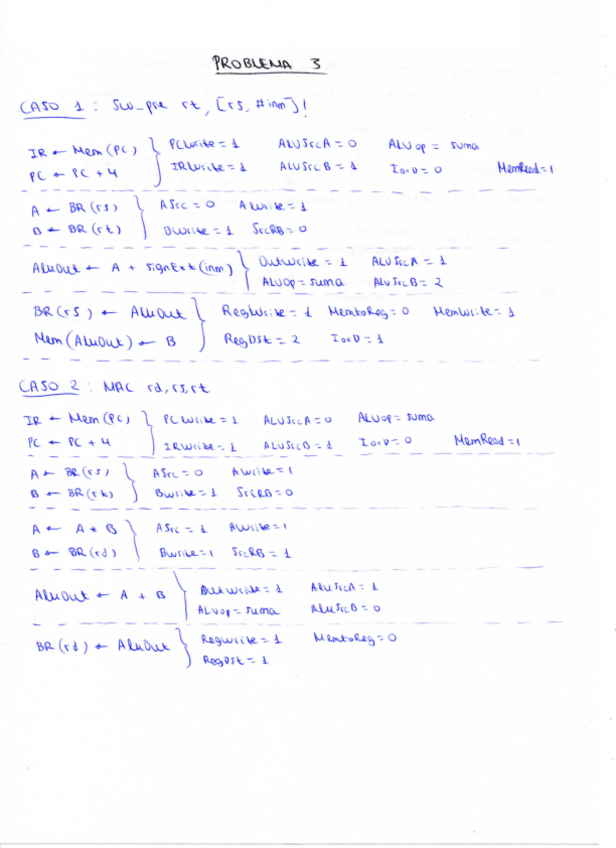 PROBLEMA 3
CASO 1 : SW_pre rt, [rs, #inm]!
IR ← Mem(PC) } PCWrite = 1 ALUSrcA = 0 ALUop = suma
PC ← PC + 4 IRWrite = 1 ALUSrcB = 1 IorD = 0 MemRead = 1
A ← BR(rs) } ASrc = 0 AWrite = 1
B ← BR(rt) BWrite = 1 SrcRB = 0
AluOut ← A + signExt(inm) } OutWrite = 1 ALUSrcA = 1
ALUop = suma ALUSrcB = 2
BR(rs) ← AluOut } RegWrite = 1 MemtoReg = 0 MemWrite = 1
Mem(AluOut) ← B RegDst = 2 IorD = 1
CASO 2 : MAC rd, rs, rt
IR ← Mem(PC) } PCWrite = 1 ALUSrcA = 0 ALUop = suma
PC ← PC + 4 IRWrite = 1 ALUSrcB = 1 IorD = 0 MemRead = 1
A ← BR(rs) } ASrc = 0 AWrite = 1
B ← BR(rt) BWrite = 1 SrcRB = 0
A ← A * B } ASrc = 1 AWrite = 1
B ← BR(rd) BWrite = 1 SrcRB = 1
AluOut ← A + B } OutWrite = 1 ALUSrcA = 1
ALUop = suma ALUSrcB = 0
BR(rd) ← AluOut } RegWrite = 1 MemtoReg = 0
RegDst = 1